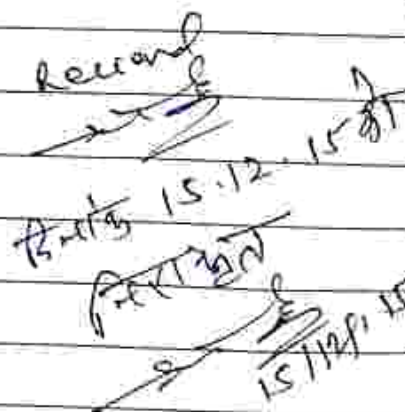 Record
दिनांक 15.12.15 को
निराकृत
15/12/15